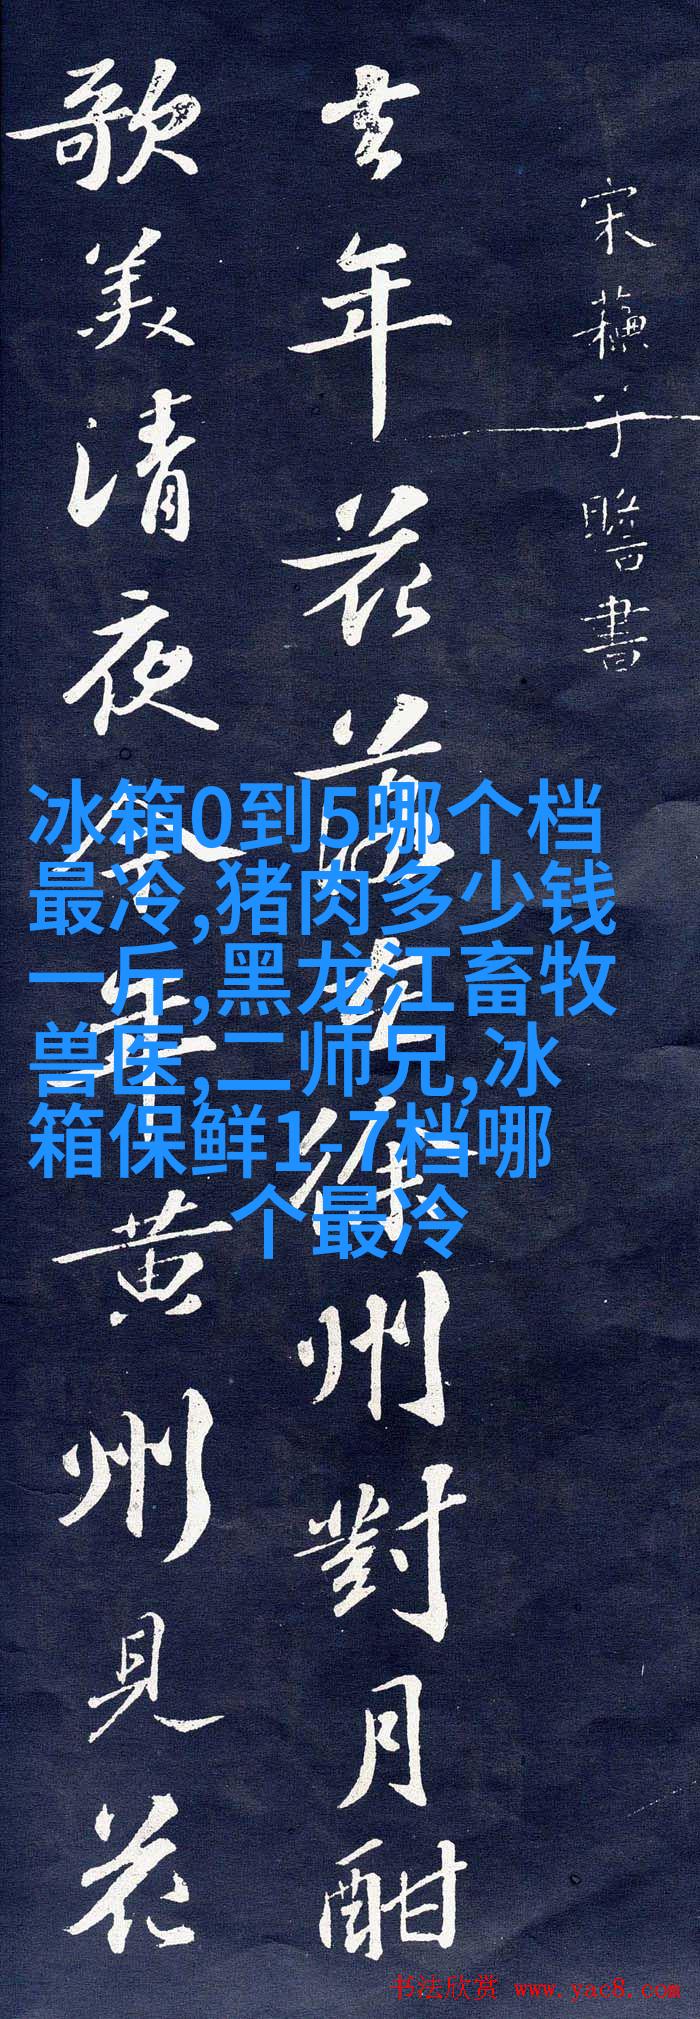 宋蘇子瞻書
去年花落在徐州對月酣
歌美清夜今年黄州見花
冰箱0到5哪个档
最冷,猪肉多少钱
一斤,黑龙江畜牧
兽医,二师兄,冰
箱保鲜1-7档哪
个最冷
书法欣赏 www.yac8.com